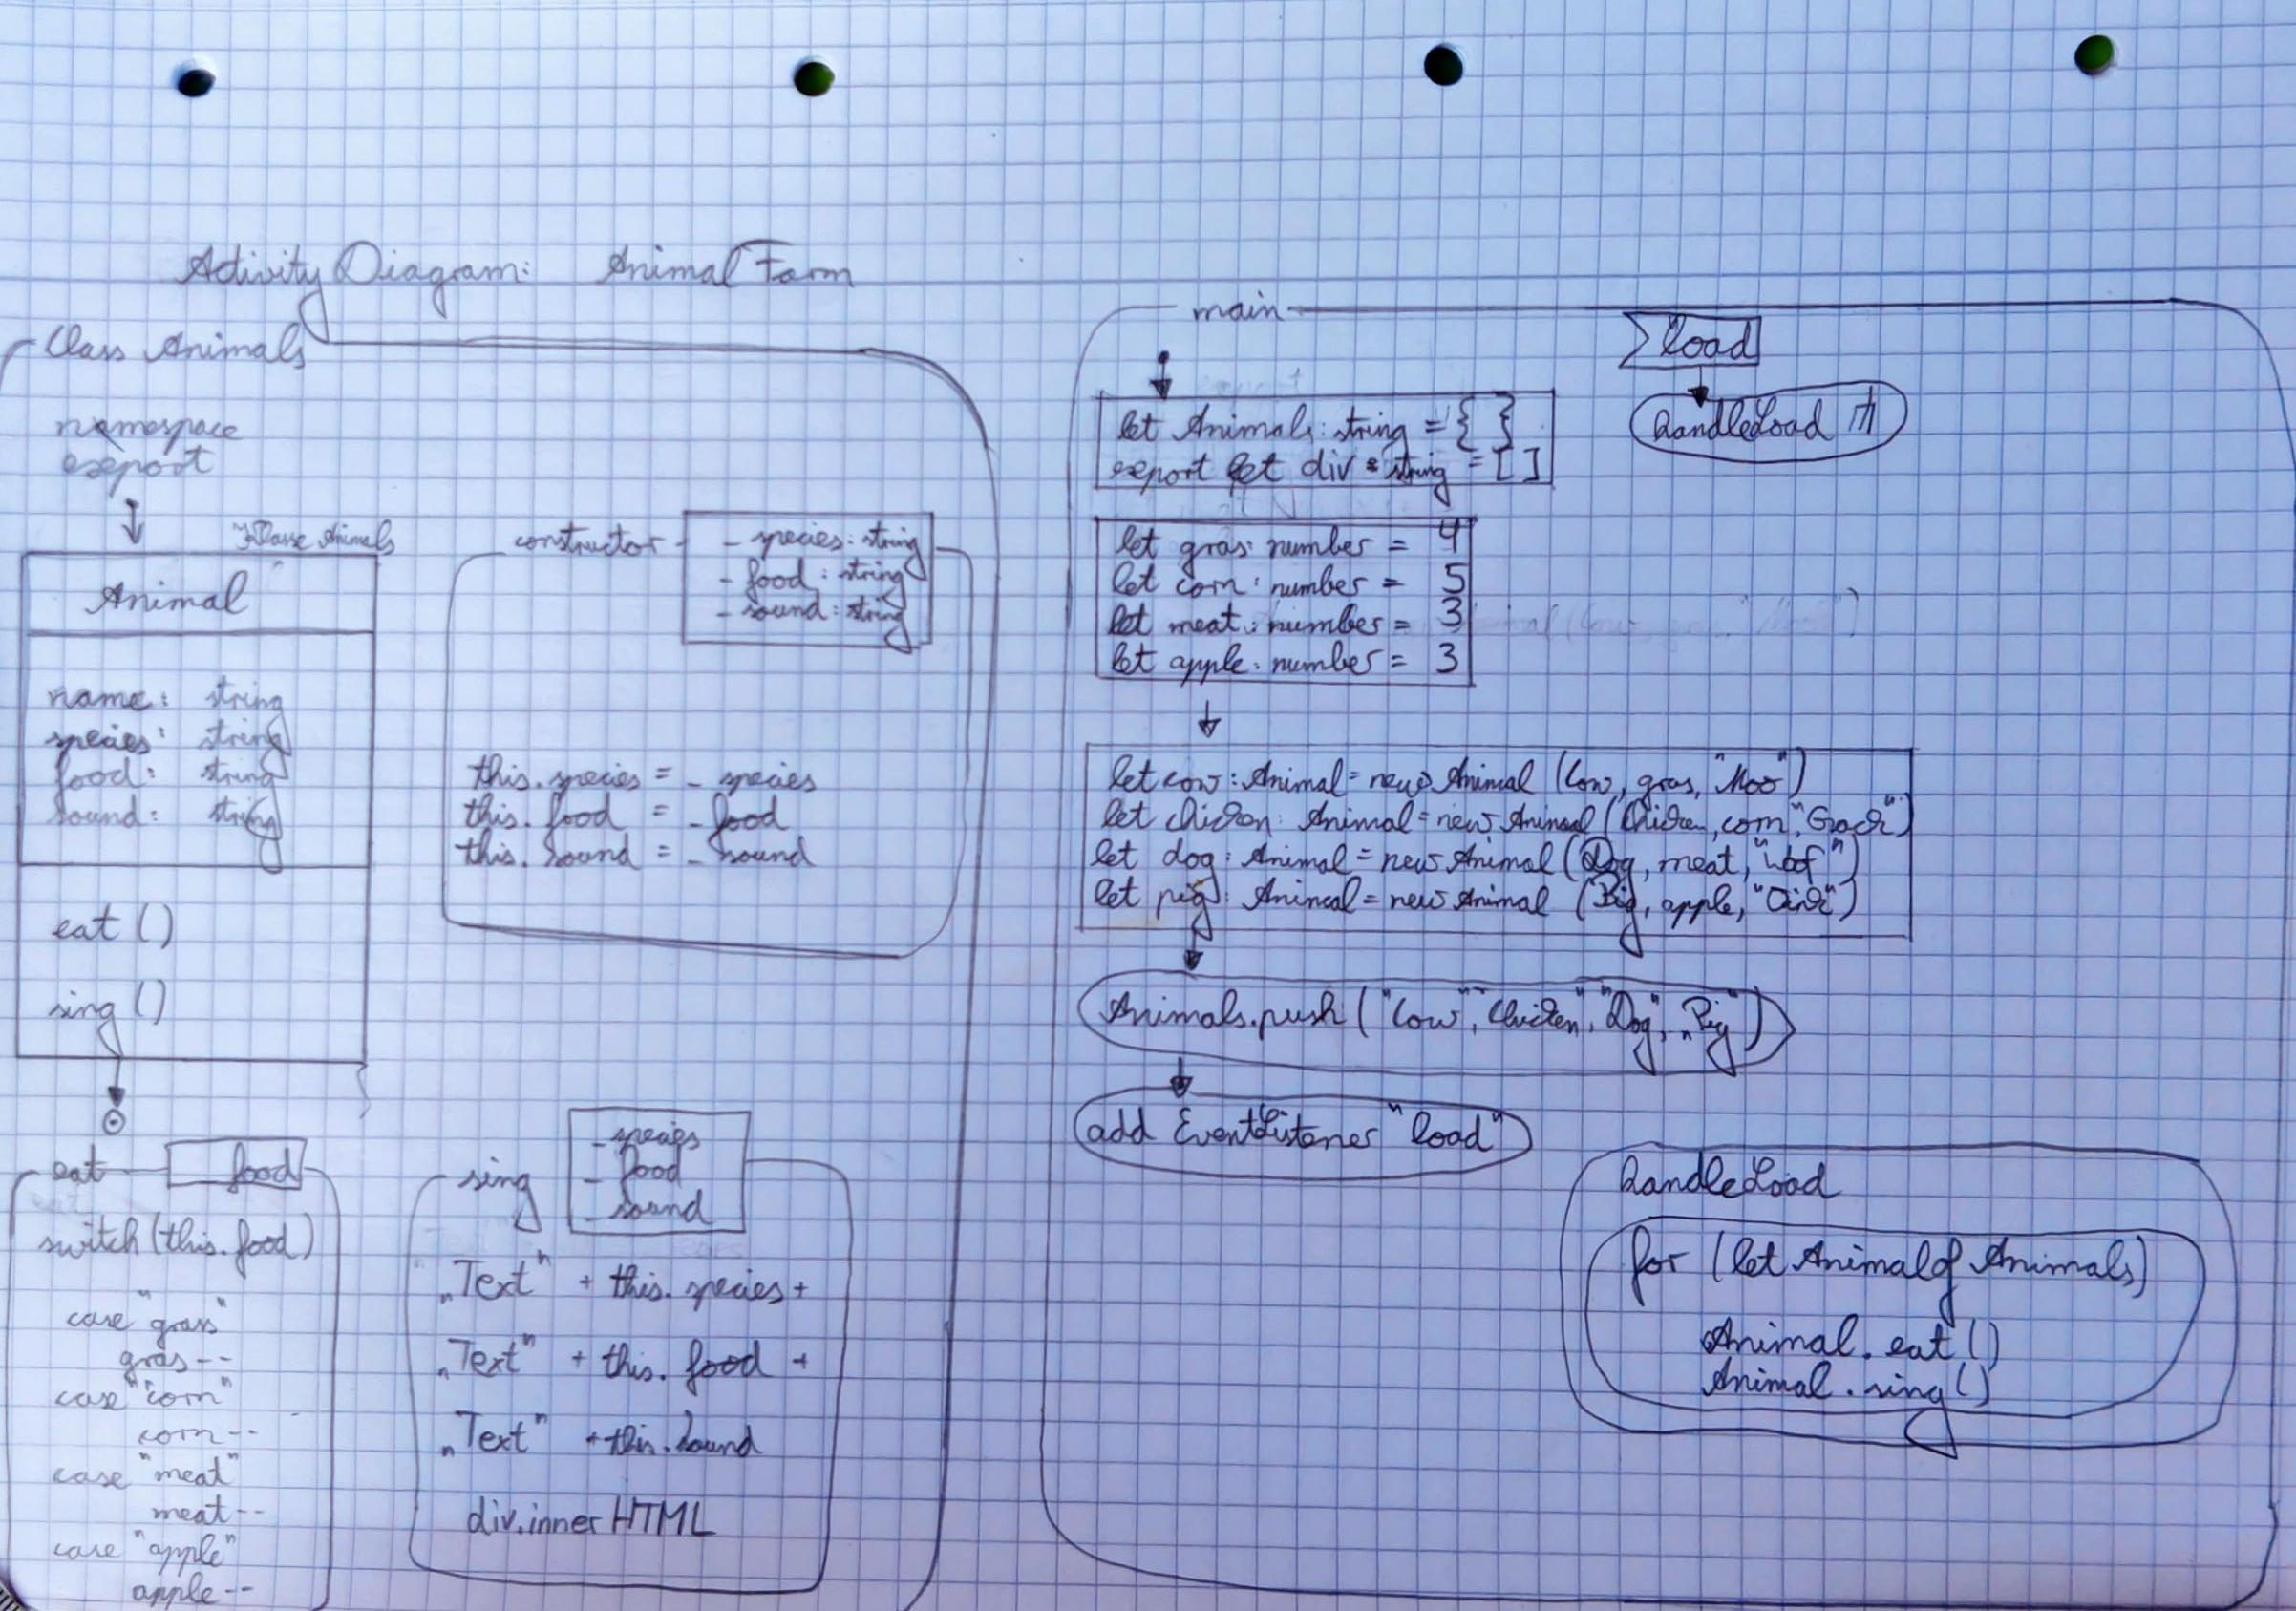 Activity Diagram: Animal Farm
Class Animals
namespace
export
Klasse Animals
Animal
name: string
species: string
food: string
sound: string
eat ()
sing ()
constructor
- species: string
- food: string
- sound: string
this.species = - species
this.food = - food
this.sound = - sound
eat food
switch (this.food)
case "grass"
gras--
case "corn"
corn--
case "meat"
meat--
case "apple"
apple--
sing
- species
- food
- sound
„Text" + this.species +
„Text" + this.food +
„Text" + this.sound
div.innerHTML
main
let Animals: string = { }
export let div: string = [ ]
let gras: number = 4
let corn: number = 5
let meat: number = 3
let apple: number = 3
let cow: Animal = new Animal (Cow, gras, "Moo")
let chicken: Animal = new Animal (Chicken, corn, "Gack")
let dog: Animal = new Animal (Dog, meat, "Wof")
let pig: Animal = new Animal (Pig, apple, "Oink")
Animals.push ("Cow", "Chicken", "Dog", „Pig")
add EventListener "load"
load
handleLoad
handleLoad
for (let Animal of Animals)
Animal.eat ()
Animal.sing ()